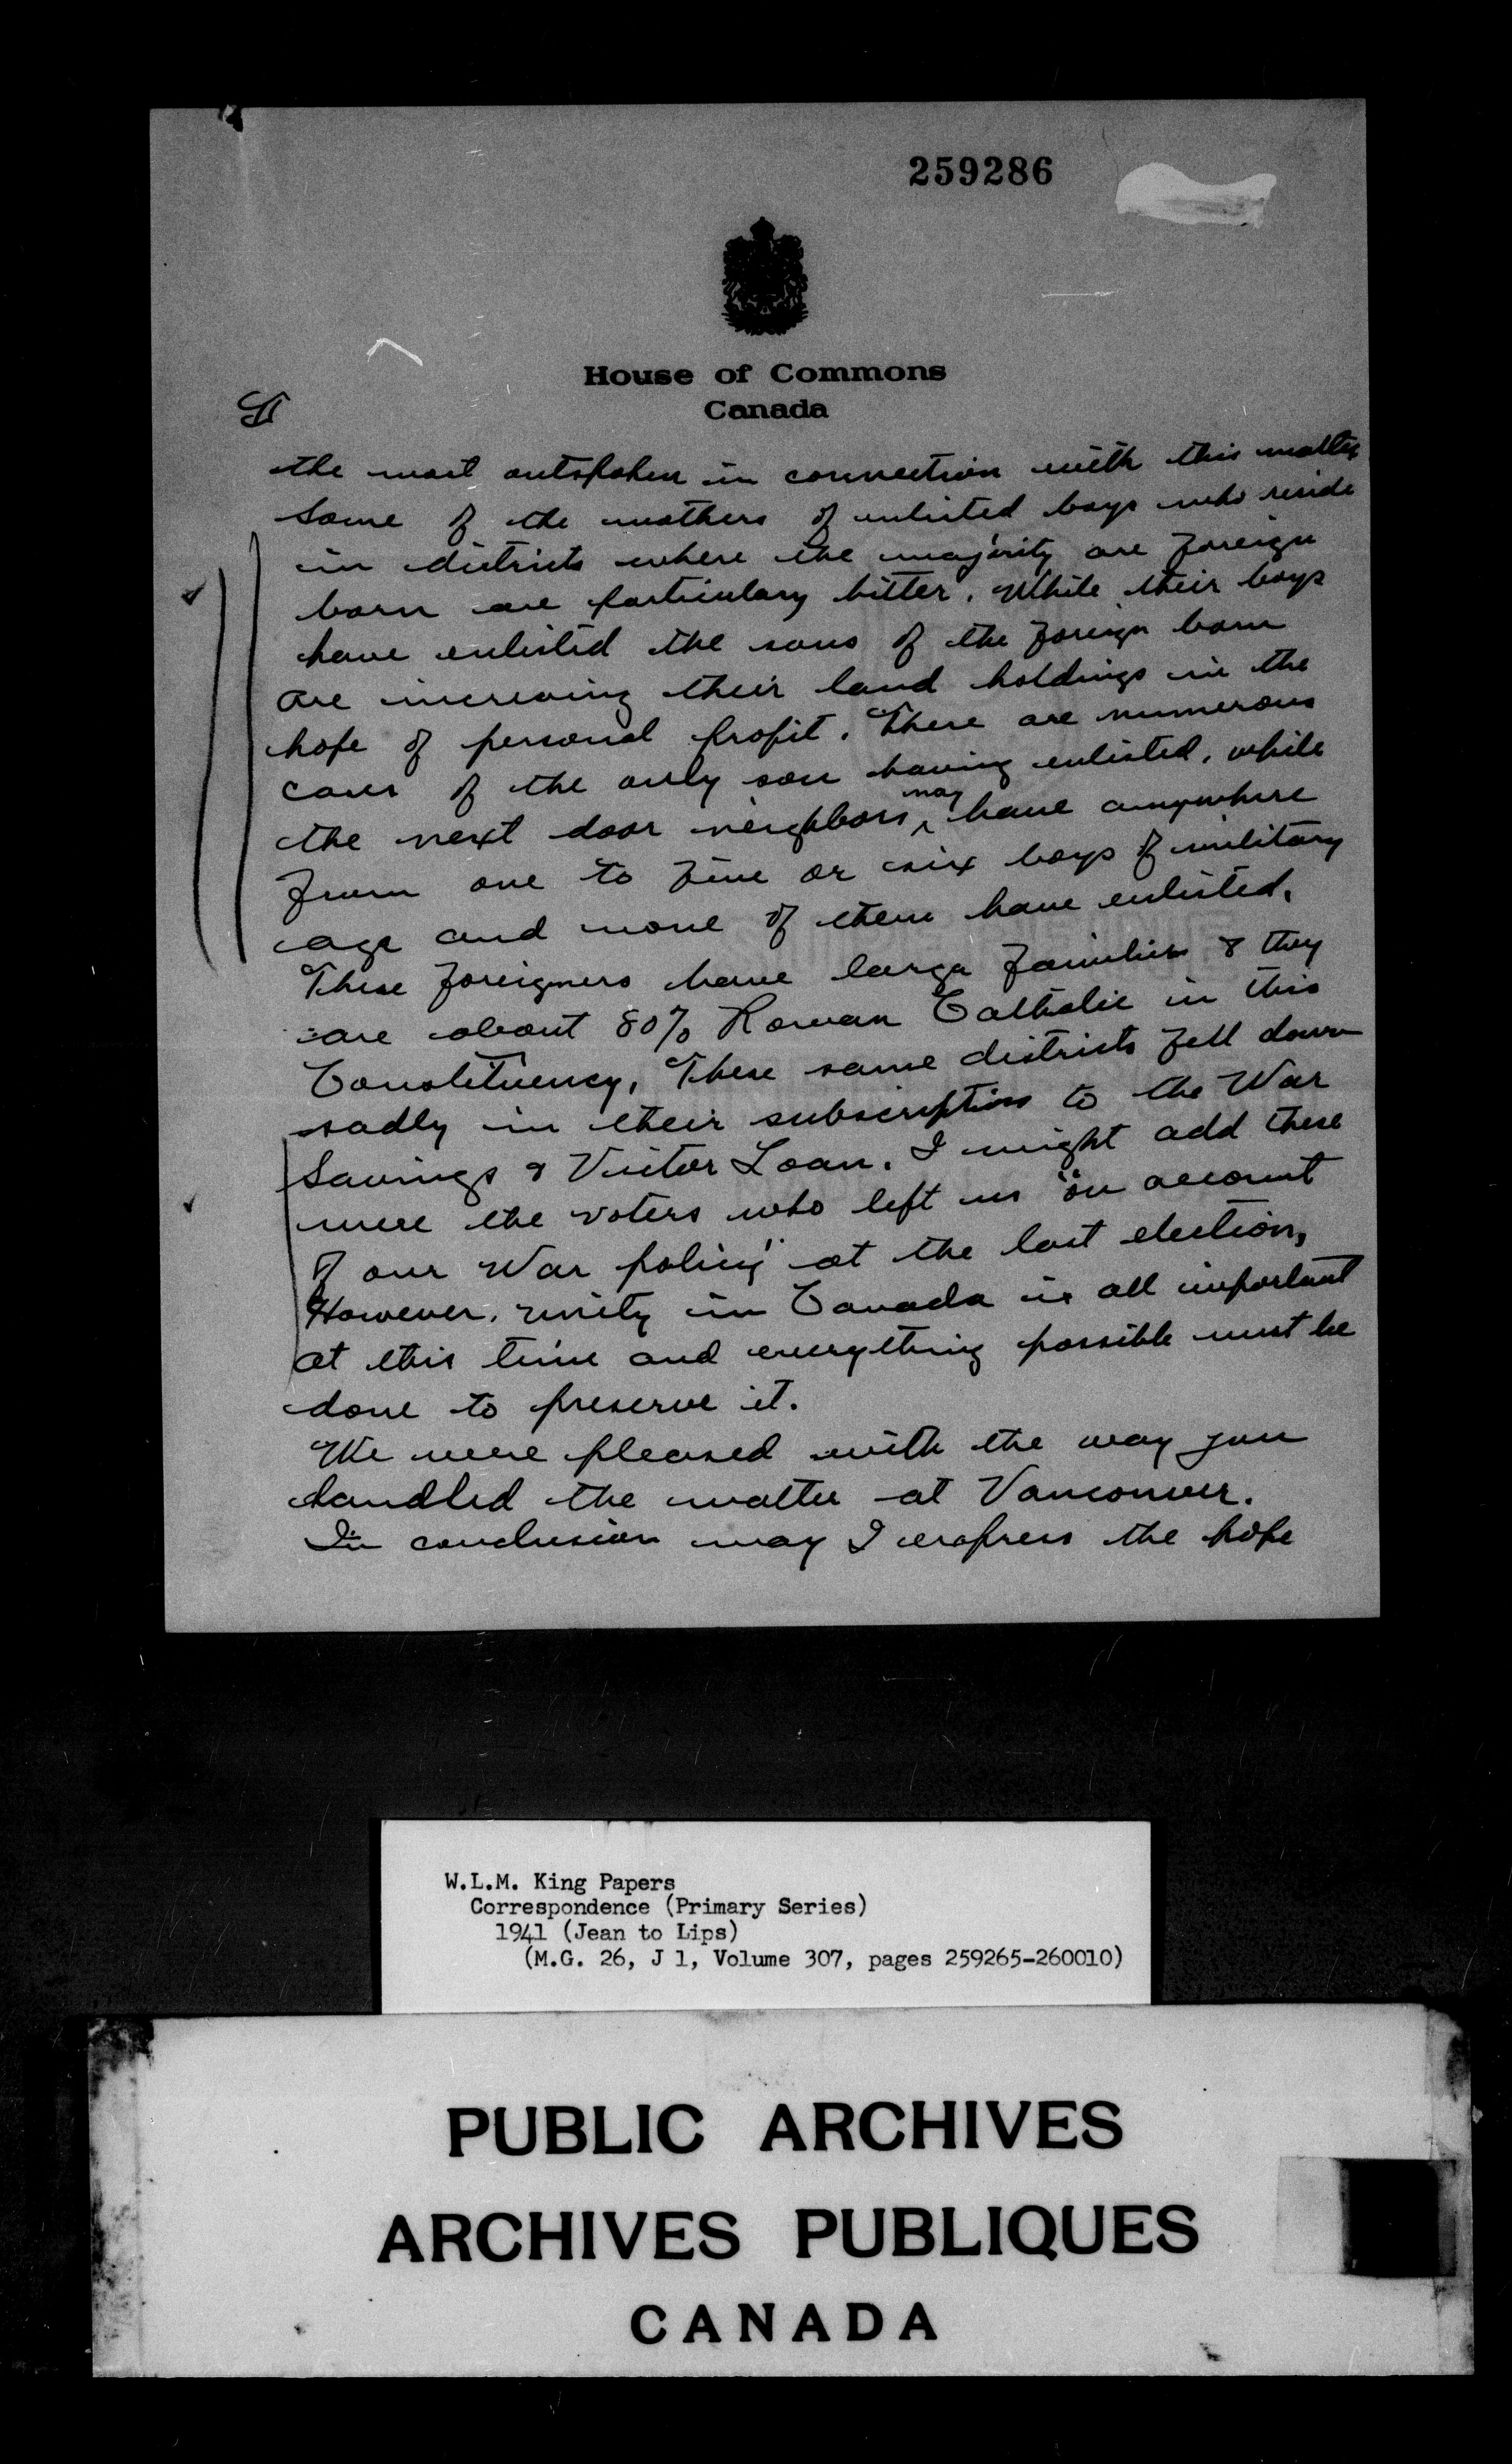 259286
House of Commons
Canada
the most outspoken in connection with this matter
Some of the mothers of enlisted boys who reside
in districts where the majority are foreign
born are particulary bitter. While their boys
have enlisted the sons of the foreign born
are increasing their land holdings in the
hope of personal profit. There are numerous
cases of the only son having enlisted, while
the next door neighbors may have anywhere
from one to five or six boys of military
age and none of them have enlisted.
These foreigners have large families & they
are about 80% Roman Catholic in this
Constituency. These same districts fell down
sadly in their subscriptions to the War
Savings & Victor Loan. I might add these
were the voters who left us "on account
of our War policy" at the last election,
However, unity in Canada is all important
at this time and everything possible must be
done to preserve it.
We were pleased with the way you
handled the matter at Vancouver.
In conclusion may I express the hope
W.L.M. King Papers
Correspondence (Primary Series)
1941 (Jean to Lips)
(M.G. 26, J 1, Volume 307, pages 259265-260010)
PUBLIC ARCHIVES
ARCHIVES PUBLIQUES
CANADA